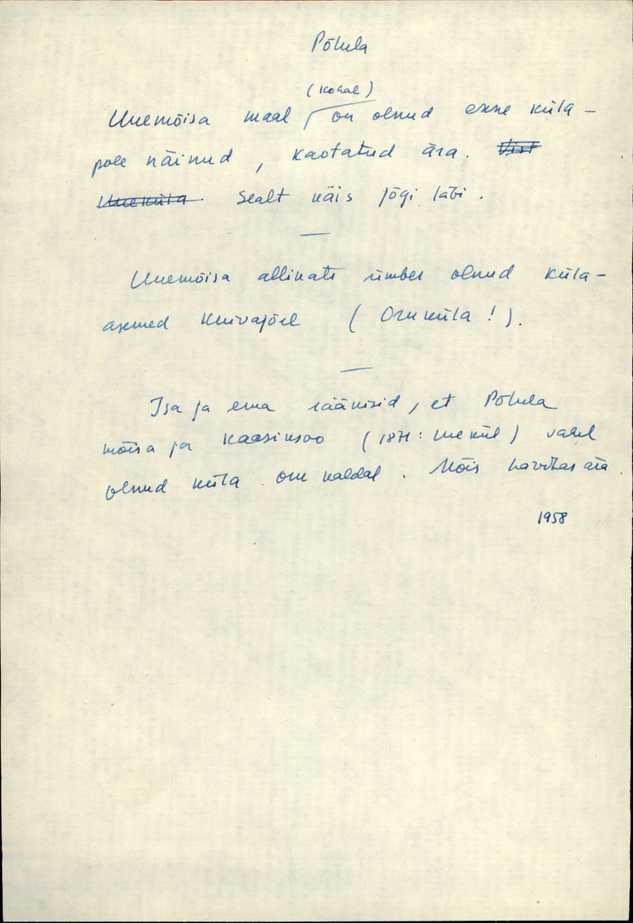 Põhula
(kohal)
Uuemõisa maal on olnud enne küla –
pole näinud, kaotatud ära. Vist
Uueküla. Sealt käis jõgi läbi.
—
Uuemõisa allikate ümber olnud küla-
asemed Kuivajõel (Oru küla!).
—
Isa ja ema rääkisid, et Põhula
mõisa ja Kaasiksoo (1871: ) vahel
olnud küla oru kaldal. Mõis hävitas ära.
1958